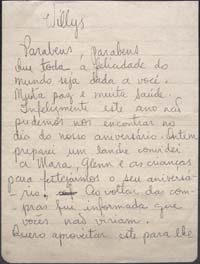 Willys
Parabens parabens
Que toda a felicidade do
mundo seja dada a você.
Muita paz e muita saúde.
Infelizmente este ano não
pudemos nos encontrar no
dia do nosso aniversário. Ontem
preparei um lanche convidei
a Mara, Glenn e as crianças
para festejarmos o seu aniversá-
rio. Ao voltar das com-
pras fui informada que
vocês não viriam.
Quero aproveitar este para lhe